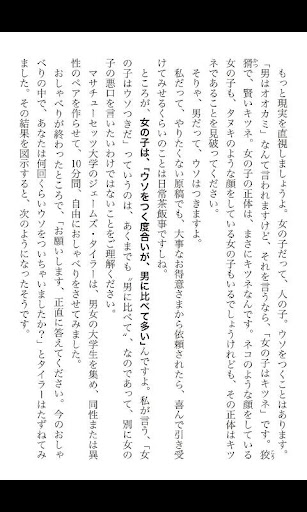 もっと現実を直視しましょうよ。女の子だって、人の子。ウソをつくことはあります。
「男はオオカミ」なんて言われますけど、それを言うなら、「女の子はキツネ」です。狡
猾で、賢いキツネ。女の子の正体は、まさにキツネなんです。ネコのような顔をしている
女の子も、タヌキのような顔をしている女の子もいるでしょうけれども、その正体はキツ
ネであることを見破ってください。
そりゃ、男だって、ウソはつきますよ。
私だって、やりたくない原稿でも、大事なお得意さまから依頼されたら、喜んで引き受
けてみせるくらいのことは日常茶飯事ですしね。
ところが、女の子は、「ウソをつく度合いが、男に比べて多い」んですよ。私が言う、「女
の子はウソつきだ」っていうのは、あくまでも〝男に比べて〟、なのであって、別に女の
子の悪口を言いたいわけではないことをご理解ください。
マサチューセッツ大学のジェームズ・タイラーは、男女の大学生を集め、同性または異
性のペアを作らせて、10分間、自由におしゃべりをさせてみました。
おしゃべりが終わったところで、「お願いします、正直に答えてください。今のおしゃ
べりの中で、あなたは何回くらいウソをついちゃいましたか?」とタイラーはたずねてみ
ました。その結果を図示すると、次のようになったそうです。